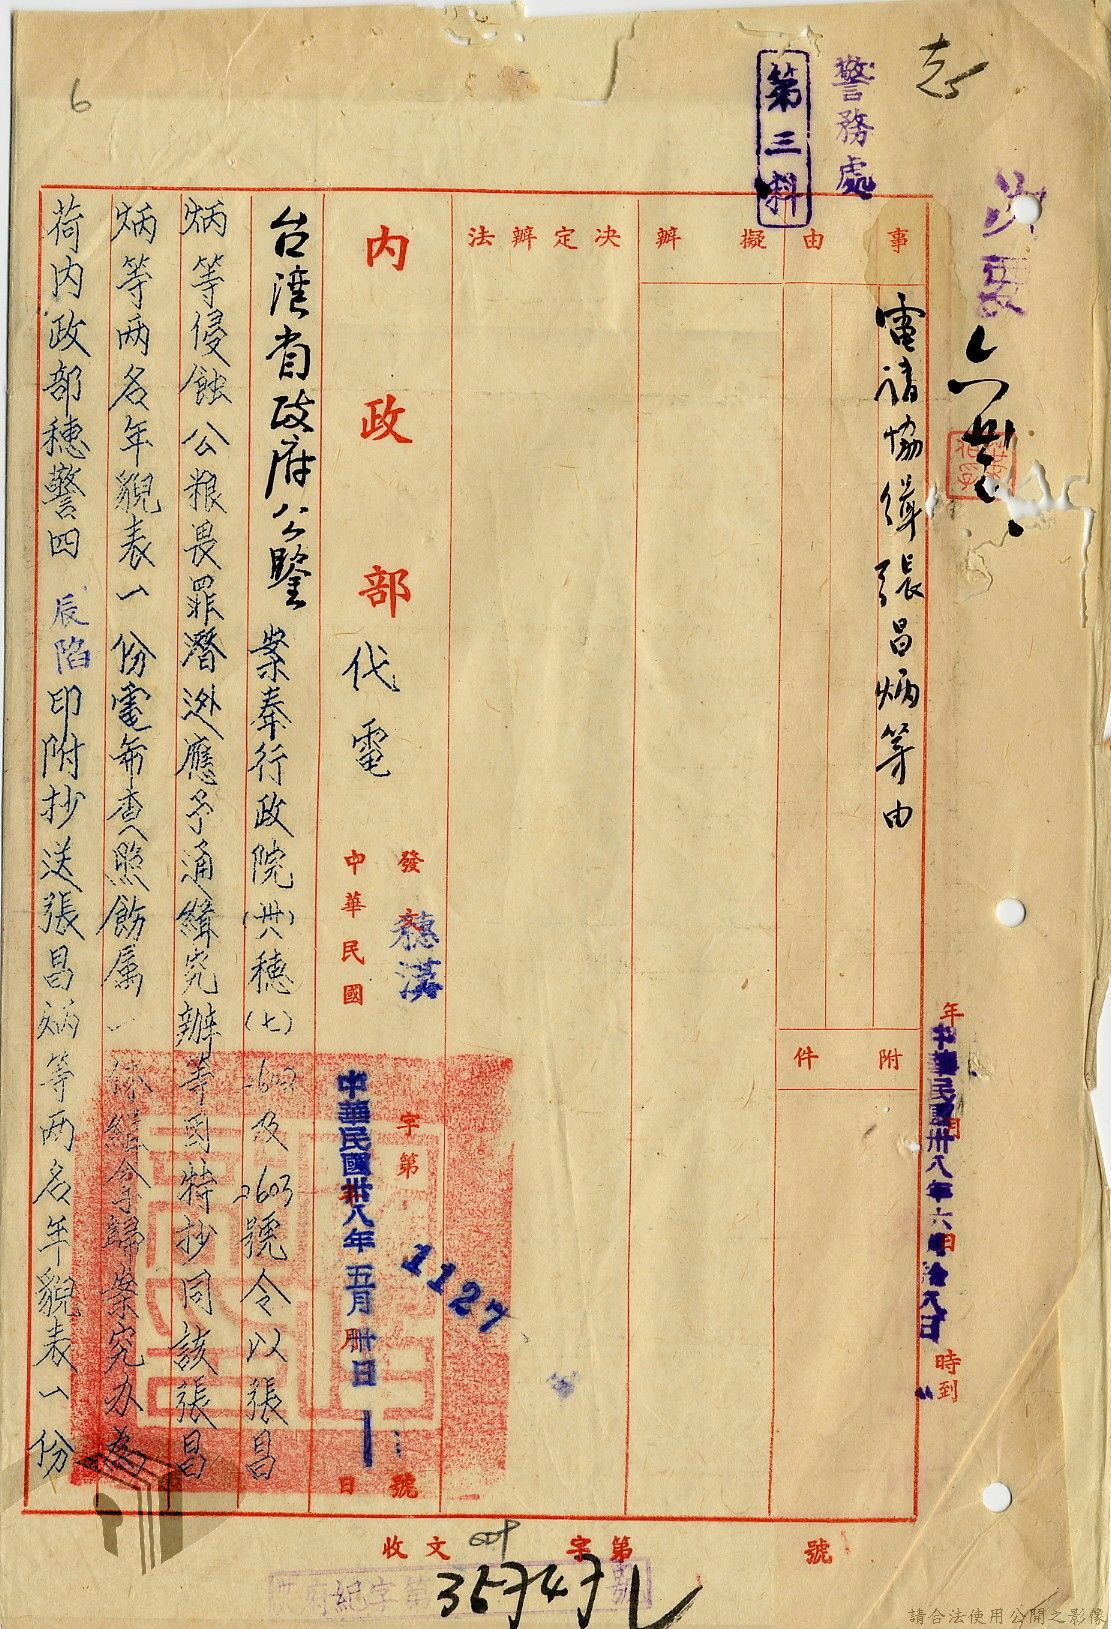 志
6
警務處
第三科
事由
擬辦
決定辦法
電請協緝張昌炳等由
附件
年
中華民國卅八年六月拾八日
時到
內政部代電
發
穗
字第
1127
號
中華民國
中華民國卅八年五月卅日
日
台湾省政府公鑒案奉行政院(卅)穗(七)
及2603號令以張昌
炳等侵蝕公粮畏罪潛逃應予通緝究辦等因特抄同該張昌
炳等两名年貌表一份電希查照飭属一体緝拿歸案究办為
荷内政部穗警四辰陷印附抄送張昌炳等两名年貌表一份
收文
字第
號
紀字第
號
請合法使用公開之影像